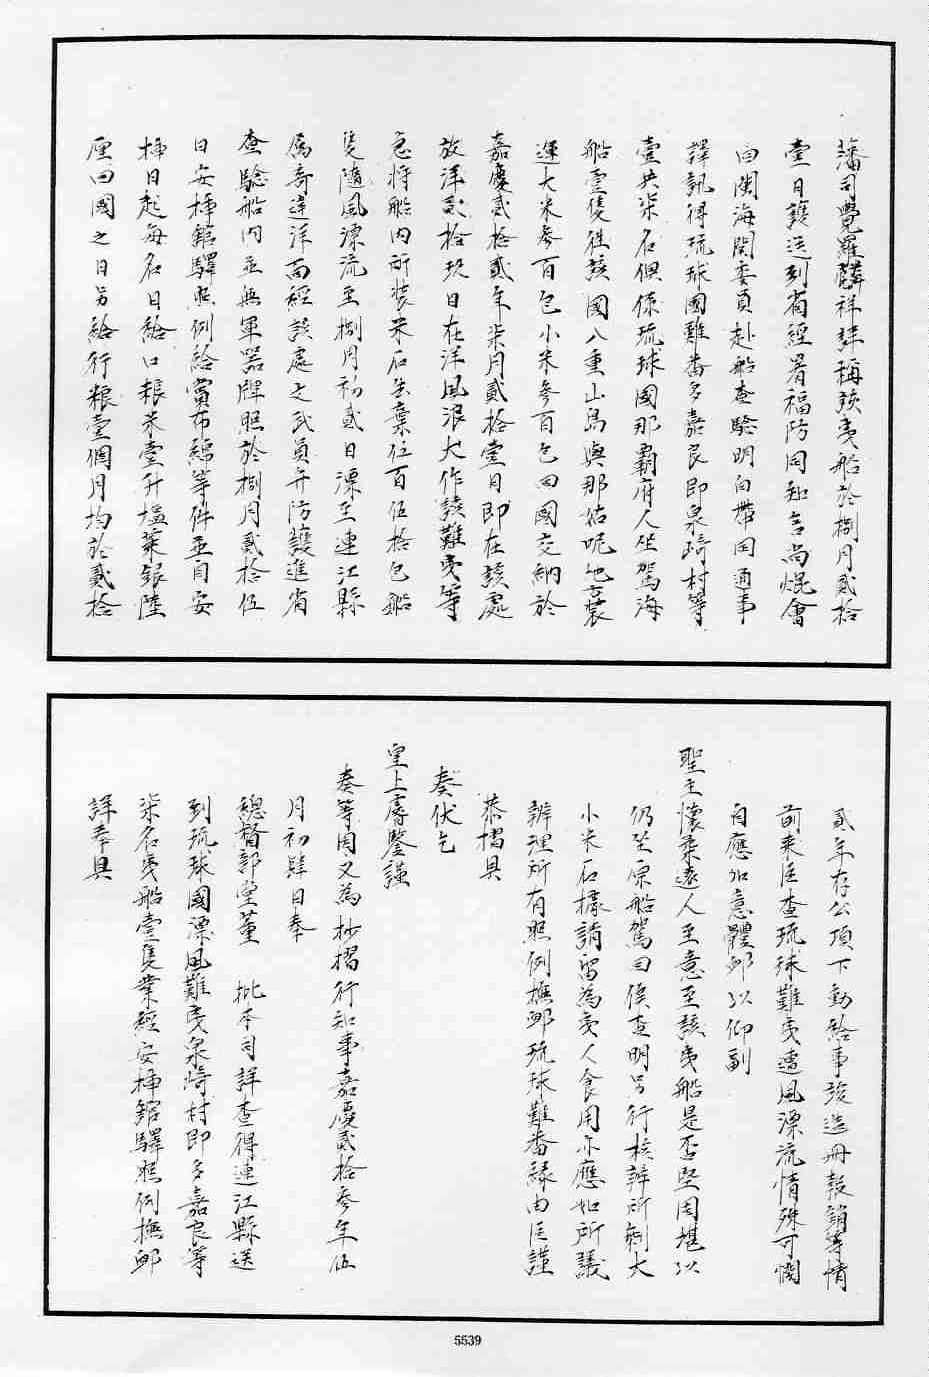 藩司覺羅麟祥詳稱該夷船於捌月貳拾
壹日護送到省經署福防同知言尚焜會
同閩海關委員赴船查驗明白帶同通事
譯訊得琉球國難番多嘉良即泉崎村等
壹共柒名俱係琉球國那霸府人坐駕海
船壹隻往該國八重山島與那姑呢地裝
運大米參百包小米參百包回國交納於
嘉慶貳拾貳年柒月貳拾壹日即在該處
放洋貳拾玖日在洋風浪大作該難夷等
急將船內所裝米石丟棄伍百伍拾包船
隻隨風漂流至捌月初貳日漂至連江縣
屬奇達洋面經該處之武員弁防護進省
查驗船內並無軍器牌照於捌月貳拾伍
日安插館驛照例給賞布綿等件並自安
插日起每名日給口粮米壹升塩菜銀陸
厘回國之日另給行粮壹個月均於貳拾
貳年存公項下動給事竣造冊報銷等情
前來臣查琉球難夷遭風漂流情殊可憫
自應加意體卹以仰副
聖主懷柔遠人至意至該夷船是否堅固堪以
仍坐原船駕回俟查明另行核辦所剩大
小米石據請留為夷人食用亦應如所議
辦理所有照例撫卹琉球難番緣由臣謹
恭摺具
奏伏乞
皇上睿鑒謹
奏等因又為抄摺行知事嘉慶貳拾參年伍
月初肆日奉
總督部堂董 批本司詳查得連江縣送
到琉球國漂風難夷泉崎村即多嘉良等
柒名夷船壹隻業經安插館驛照例撫卹
詳奉具
5539